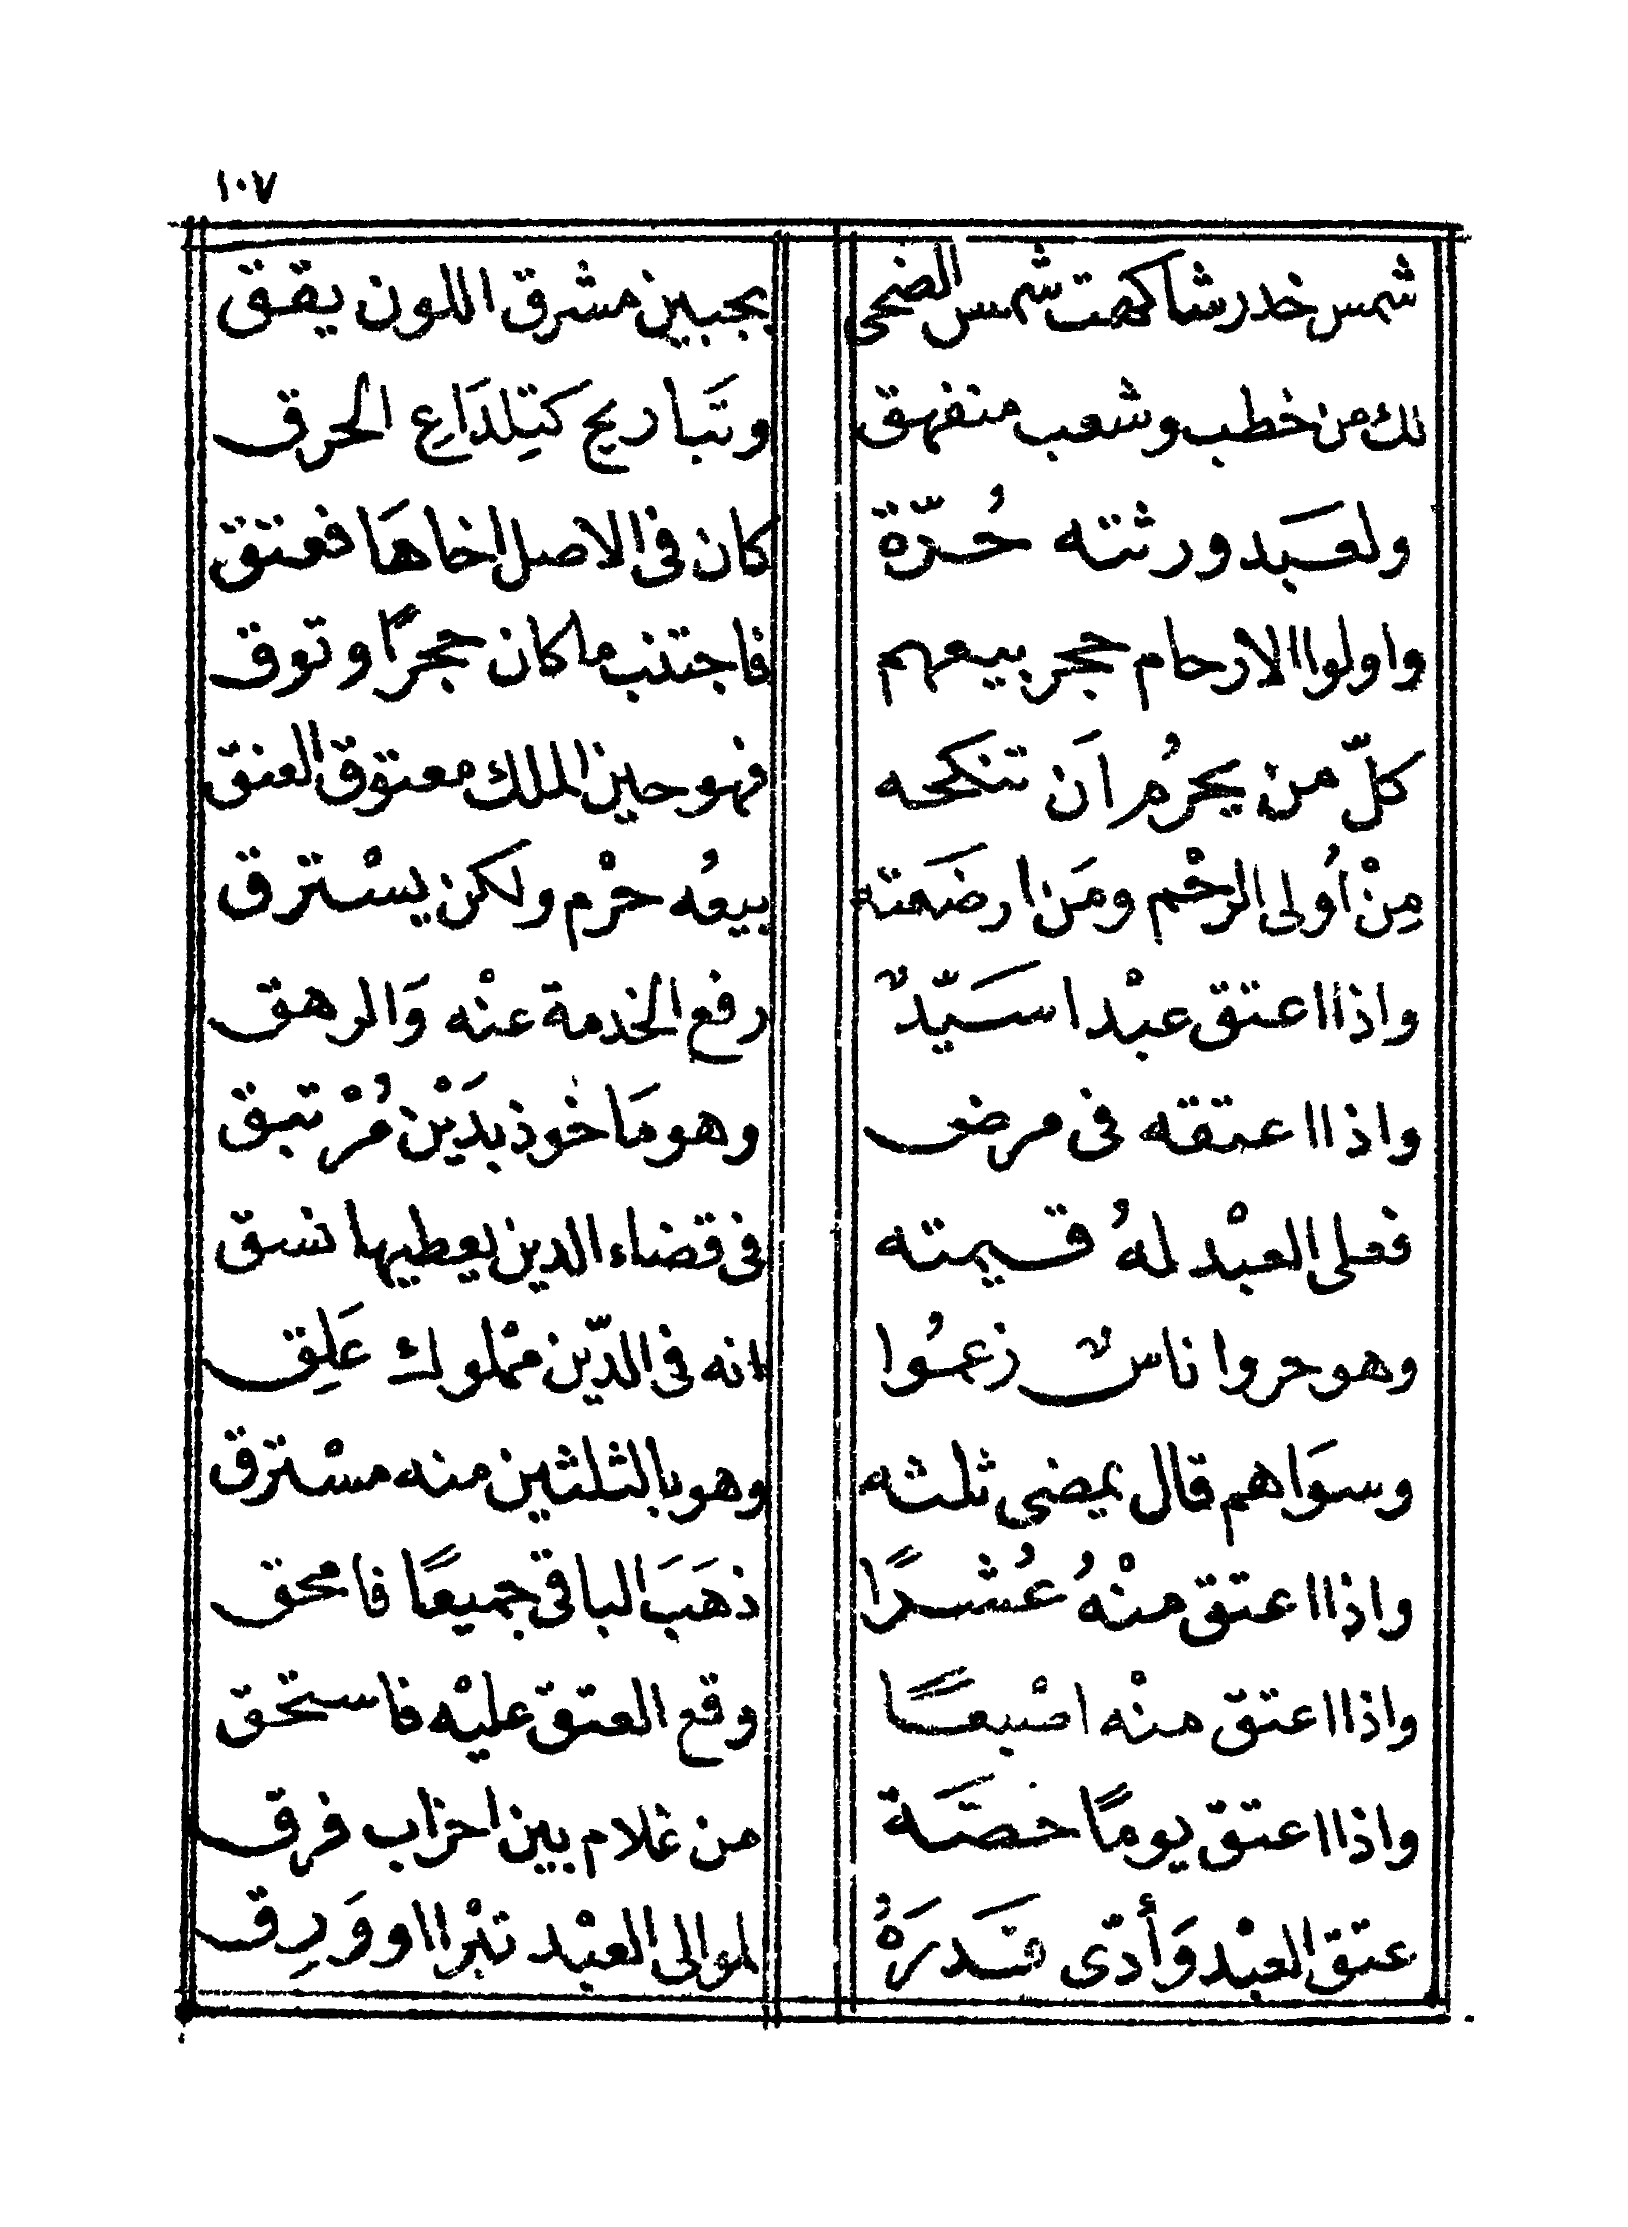 ١٠٧
شمس خدر شاكهت شمس الضحى بجبين مشرق اللون يقق
لك من خطب وشعب منفهق وتَبَاريح كتِلدَاعِ الحرق
ولعَبد ورثته حُرّة كان فى الاصل اخاهَا فعتق
واولوا الارحام حجر بيعهم فاجتنب ما كان حجرًا وتوق
كلّ من يحرُم اَن تنكحه فهو حين الملك معتوق العنق
مِنْ اُولى الرحْم ومَن ارضَعته بيعُه حرْم ولكن يسْترق
واذا اعتق عبْدا سَيّدٌ رفع الخدمة عنْه وَالرهق
واذا اعتقه فى مرض وهو مَاخوذ بدَيْن مُرْتبق
فعلى العبْد لهُ قيمته فى قضاء الدين يعطيها نسق
وهو حر وا ناسٌ زعمُوا انه فى الدّين مملوك عَلِق
وسوَاهم قال يمضى ثلثه وهو بالثلثين منه مسْترق
واذا اعتق منْهُ عُشرًا ذهَبَ الباقى جميعًا فامحق
واذا اعتق منْه اصْبعًا وقع العتق عليْه فاستحق
واذا اعتق يومًا خصَّة من غلام بين احزاب فرق
عتق العبْد وَأدّى قَدرَهُ لموالى العبْد تبْرا او وَرِق